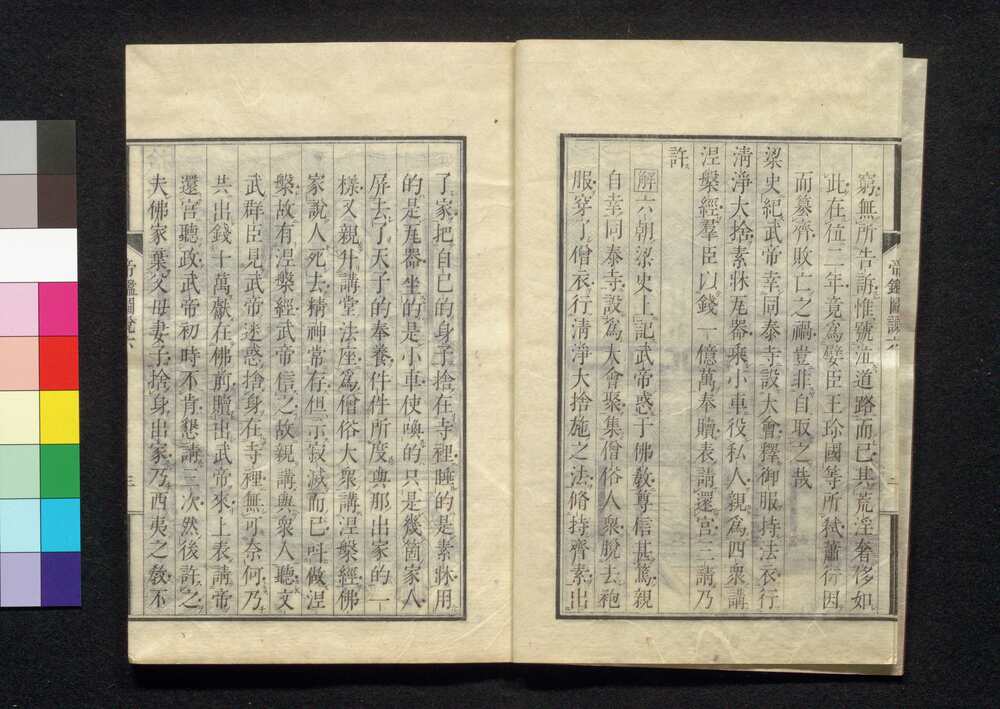 窮無所告訴惟號泣道路而已其荒淫奢侈如
此在位二年竟為嬖臣王珍國等所弒蕭衍因
而纂齊敗亡之禍豈非自取之哉
梁史紀武帝幸同泰寺設大會釋御服持法衣行
清淨大捨素牀瓦器乘小車役私人親為四衆講
涅槃經羣臣以錢一億萬奉贖表請還宮三請乃
許
解六朝梁史上記武帝惑于佛教尊信甚篤親
自幸同泰寺設為大會聚集僧俗人衆脫去袍
服穿了僧衣行清淨大捨施之法脩持齊素出
了家把自己的身子捨在寺裡睡的是素牀用
的是瓦器坐的是小車使喚的只是幾箇家人
屏去了天子的奉養件件所度與那出家的一
樣又親升講堂法座為僧俗大衆講涅槃經佛
家說人死去精神常存但示寂滅而已叫做涅
槃故有涅槃經武帝信之故親講與衆人聽文
武群臣見武帝迷惑捨身在寺裡無可奈何乃
共出錢十萬獻在佛前贖出武帝來上表請帝
還宮聽政武帝初時不肯懇請三次然後許之
夫佛家棄父母妻子捨身出家乃西夷之教不
帝鑑圖說六
二
帝鑑圖說六
三